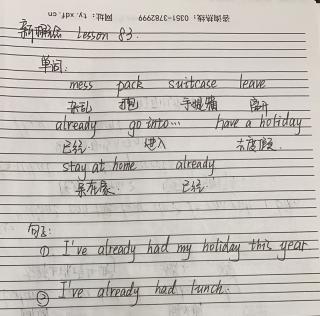 咨询热线：0351-3782999 网址：ty.xdf.cn
新概念 Lesson 83.
单词：
mess pack suitcase leave
杂乱 打包 手提箱 离开
already go into... have a holiday
已经 进入 去度假.
stay at home already
呆在家 已经
句子：
①. I've already had my holiday this year
② I've already had lunch.